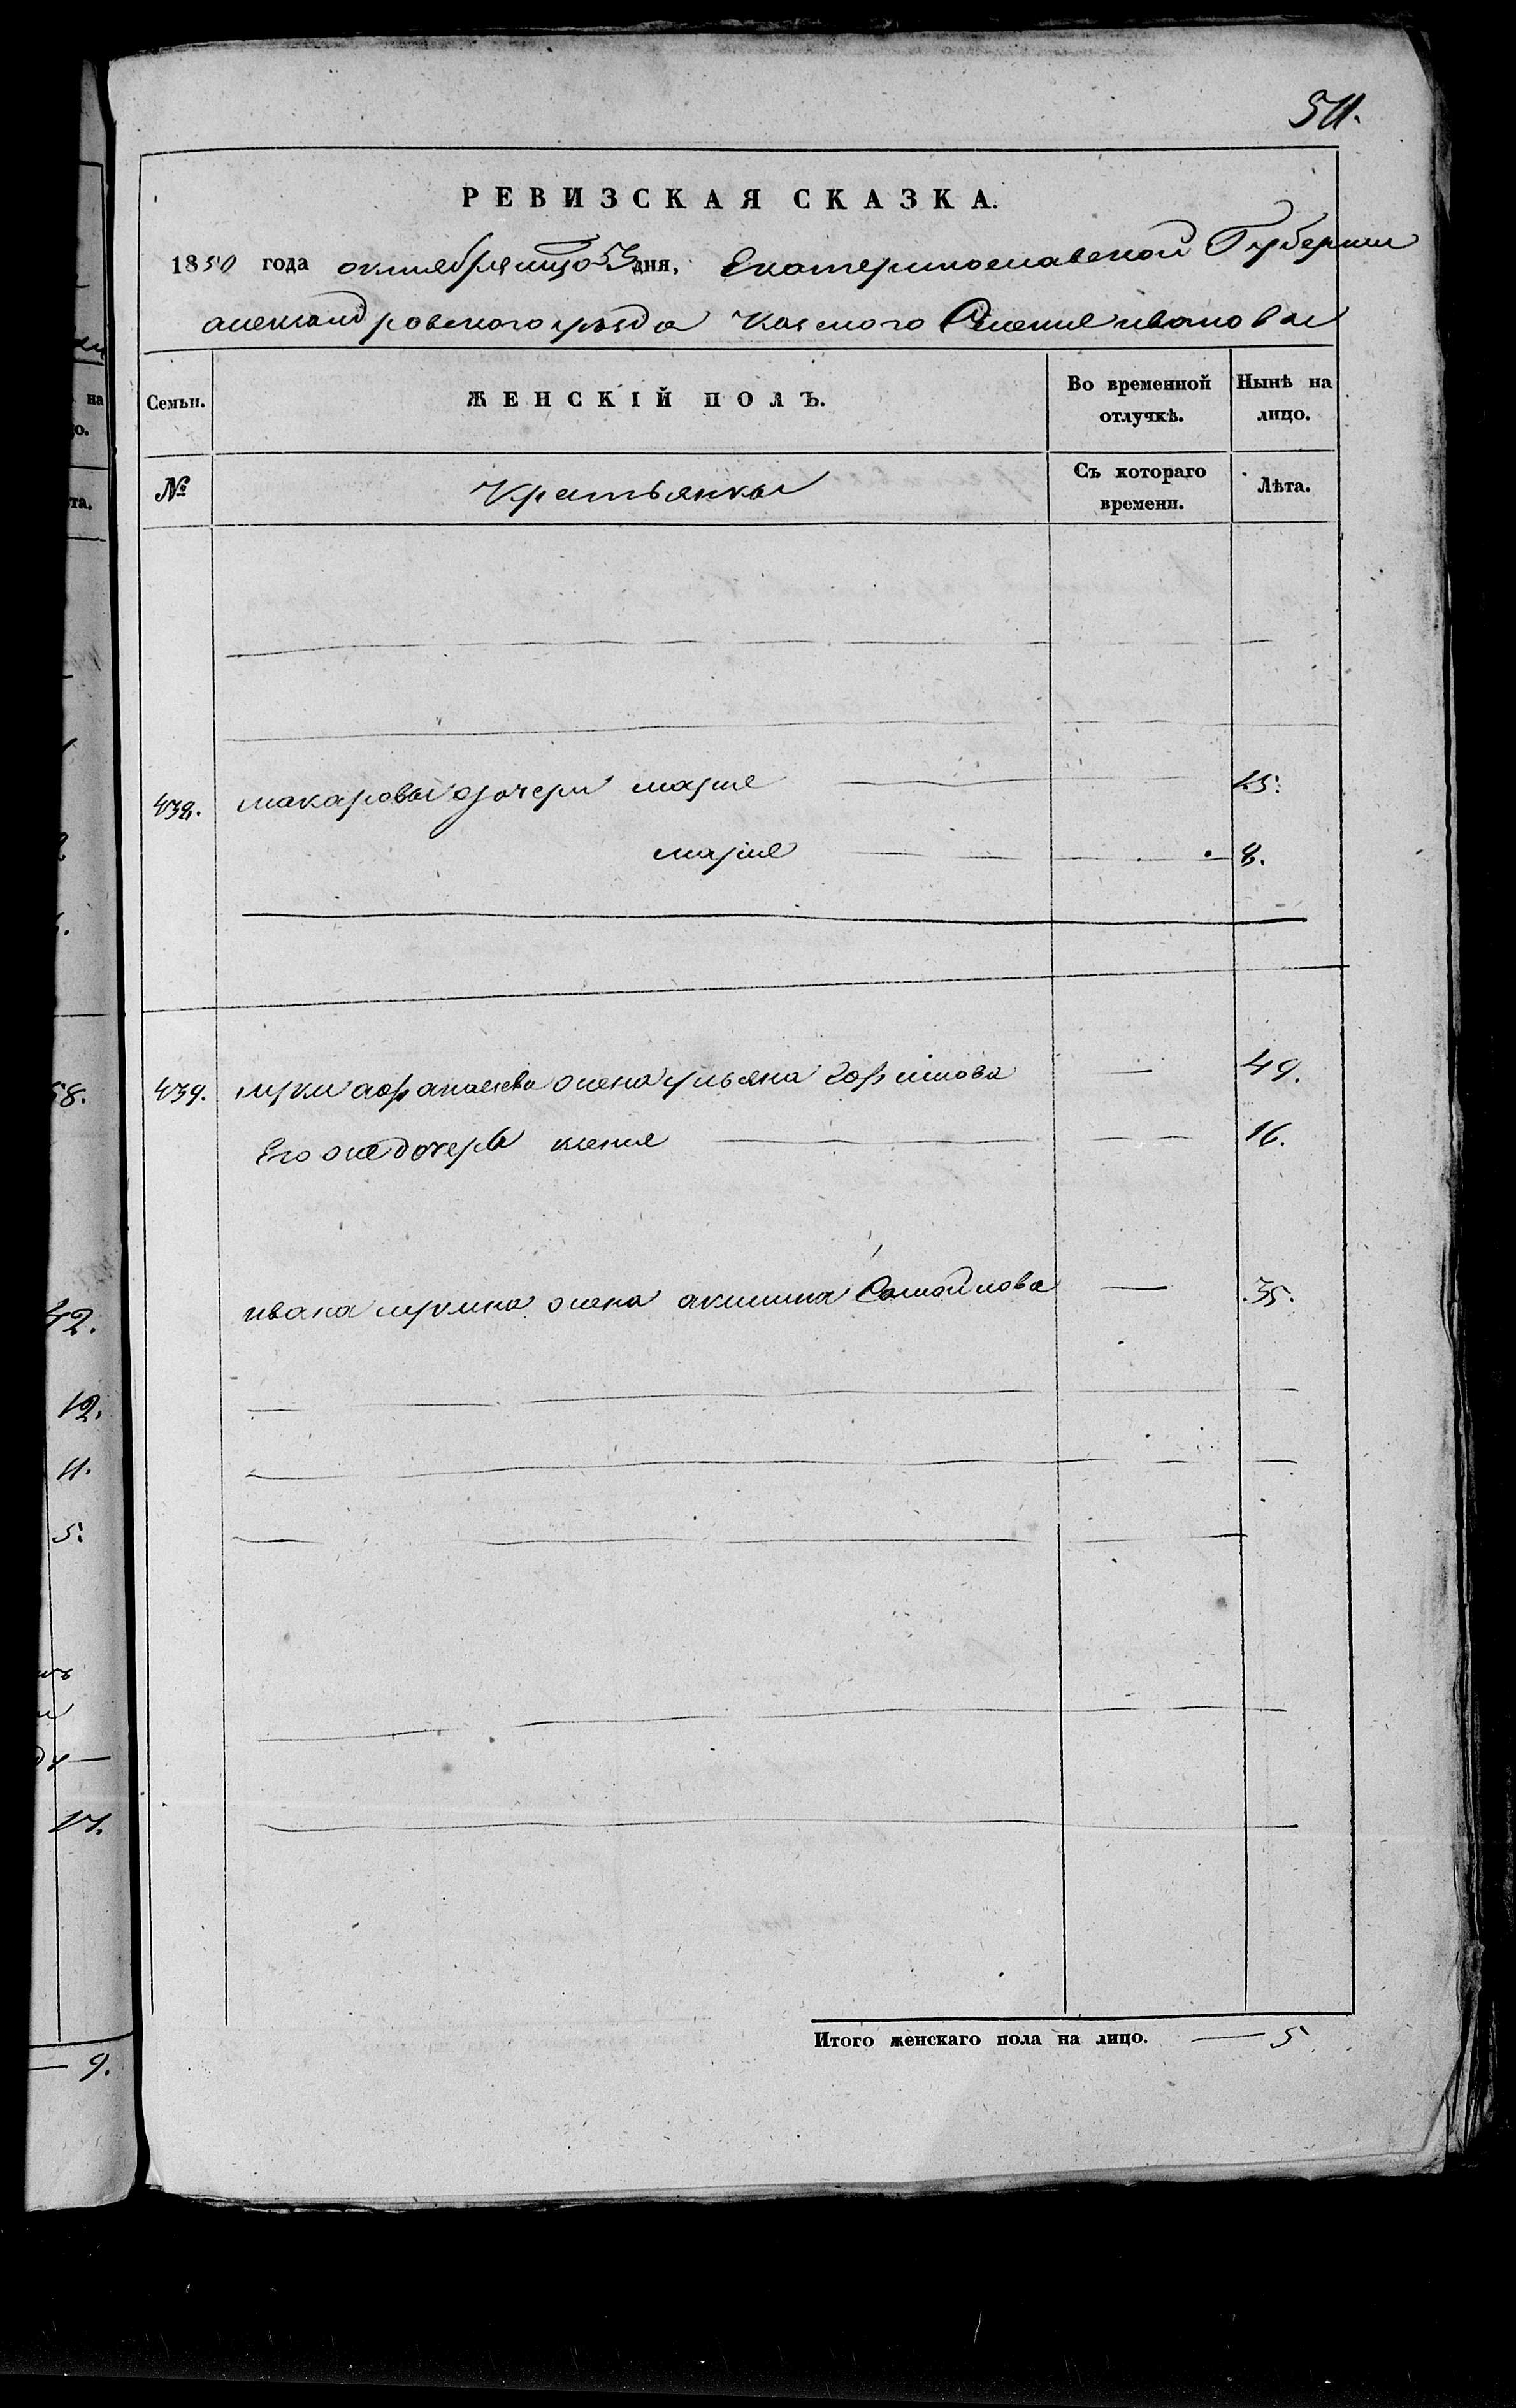 511.
РЕВИЗСКАЯ СКАЗКА.
1850 года октября дня, Екатеринославской Губернии
александровского уезда Казенного Селения ивановки
Семьи. ЖЕНСКІЙ ПОЛЪ. Во временной отлучкѣ. Нынѣ на лицо.
№ Крестьянки Съ котораго времени. Лѣта.
438. макаровы дочери марие 15.
марие 8.
439. луки афанасиева жена ульяна 49.
Его же дочерь ксения 16.
ивана лукина жена акилина Самойлова 35.
Итого женскаго пола на лицо. 5
58.
42.
12.
11.
5.
9.